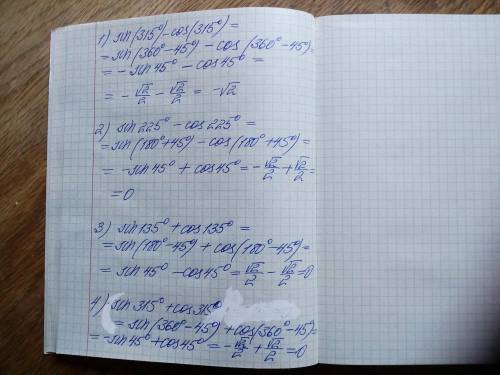 1) sin(315°) - cos(315°) =
= sin(360° - 45°) - cos(360° - 45°) =
= - sin 45° - cos 45° =
= - √2/2 - √2/2 = - √2
2) sin 225° - cos 225° =
= sin(180° + 45°) - cos(180° + 45°) =
= - sin 45° + cos 45° = - √2/2 + √2/2 =
= 0
3) sin 135° + cos 135° =
= sin(180° - 45°) + cos(180° - 45°) =
= sin 45° - cos 45° = √2/2 - √2/2 = 0
4) sin 315° + cos 315°
= sin(360° - 45°) + cos(360° - 45°) =
= - sin 45° + cos 45° = - √2/2 + √2/2 = 0